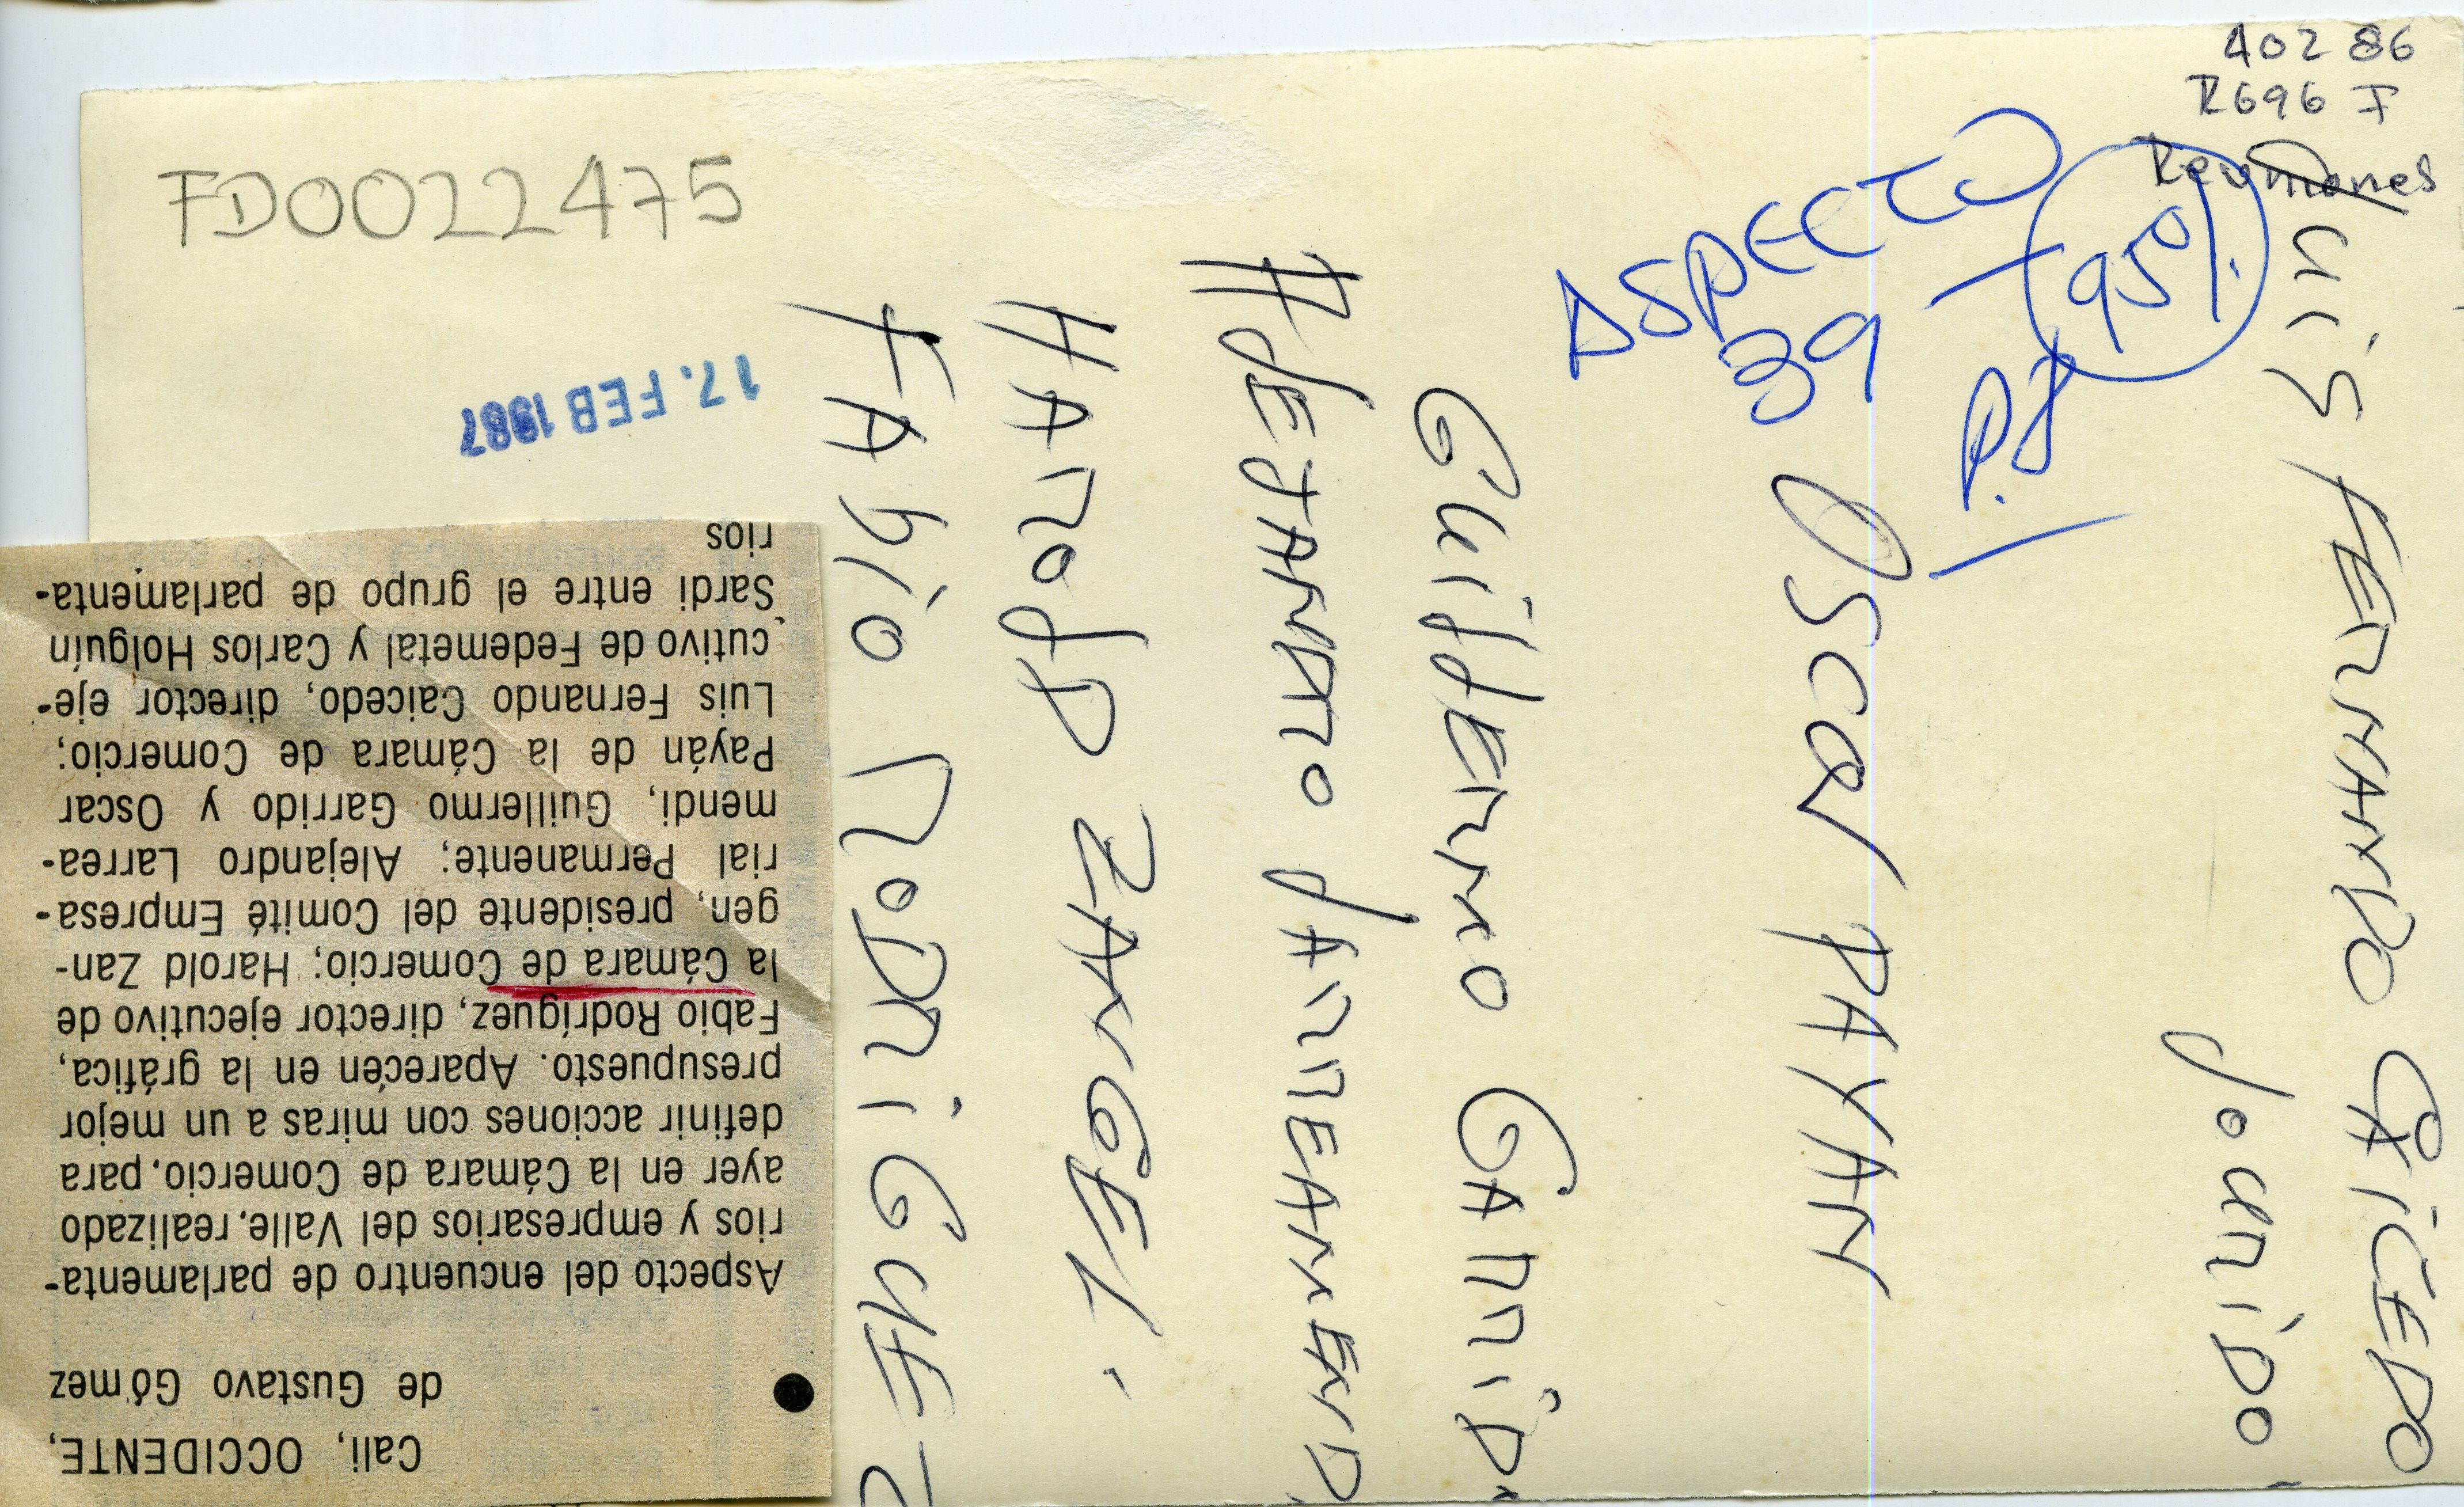 40286
R696 F
Reuniones
FD0022475
ASPECTO
39 - 95%
P.8
17. FEB 1987
Luis FERNANDO CAICEDO
Locurido
Oscar PAYAN
Guillermo GARRID
ALEJANDRO LARREAMEND
HAROLD ZANGEL.
FAbio RODRIGUEZ
Cali, OCCIDENTE,
de Gustavo Gómez
Aspecto del encuentro de parlamenta-
rios y empresarios del Valle, realizado
ayer en la Cámara de Comercio, para
definir acciones con miras a un mejor
presupuesto. Aparecen en la gráfica,
Fabio Rodríguez, director ejecutivo de
la Cámara de Comercio; Harold Zan-
gen, presidente del Comité Empresa-
rial Permanente; Alejandro Larrea-
mendi, Guillermo Garrido y Oscar
Payán de la Cámara de Comercio;
Luis Fernando Caicedo, director eje-
cutivo de Fedemetal y Carlos Holguín
Sardi entre el grupo de parlamenta-
rios